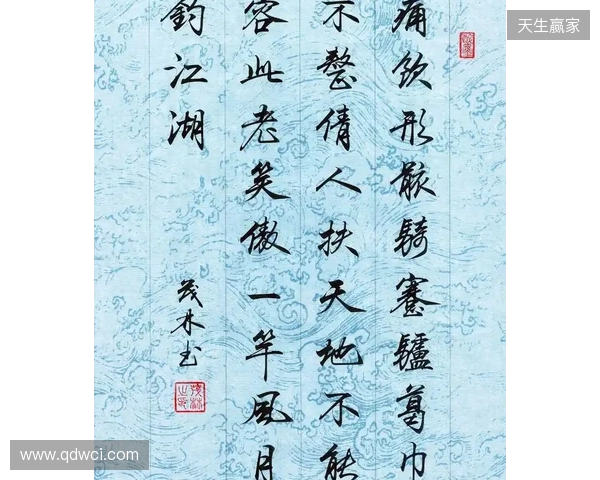 痛饮形骸騎蹇驢葛巾
不整倩人扶天地不能
容此老笑傲一竿風月
釣江湖
茂林书
天生赢家
www.qdwci.com